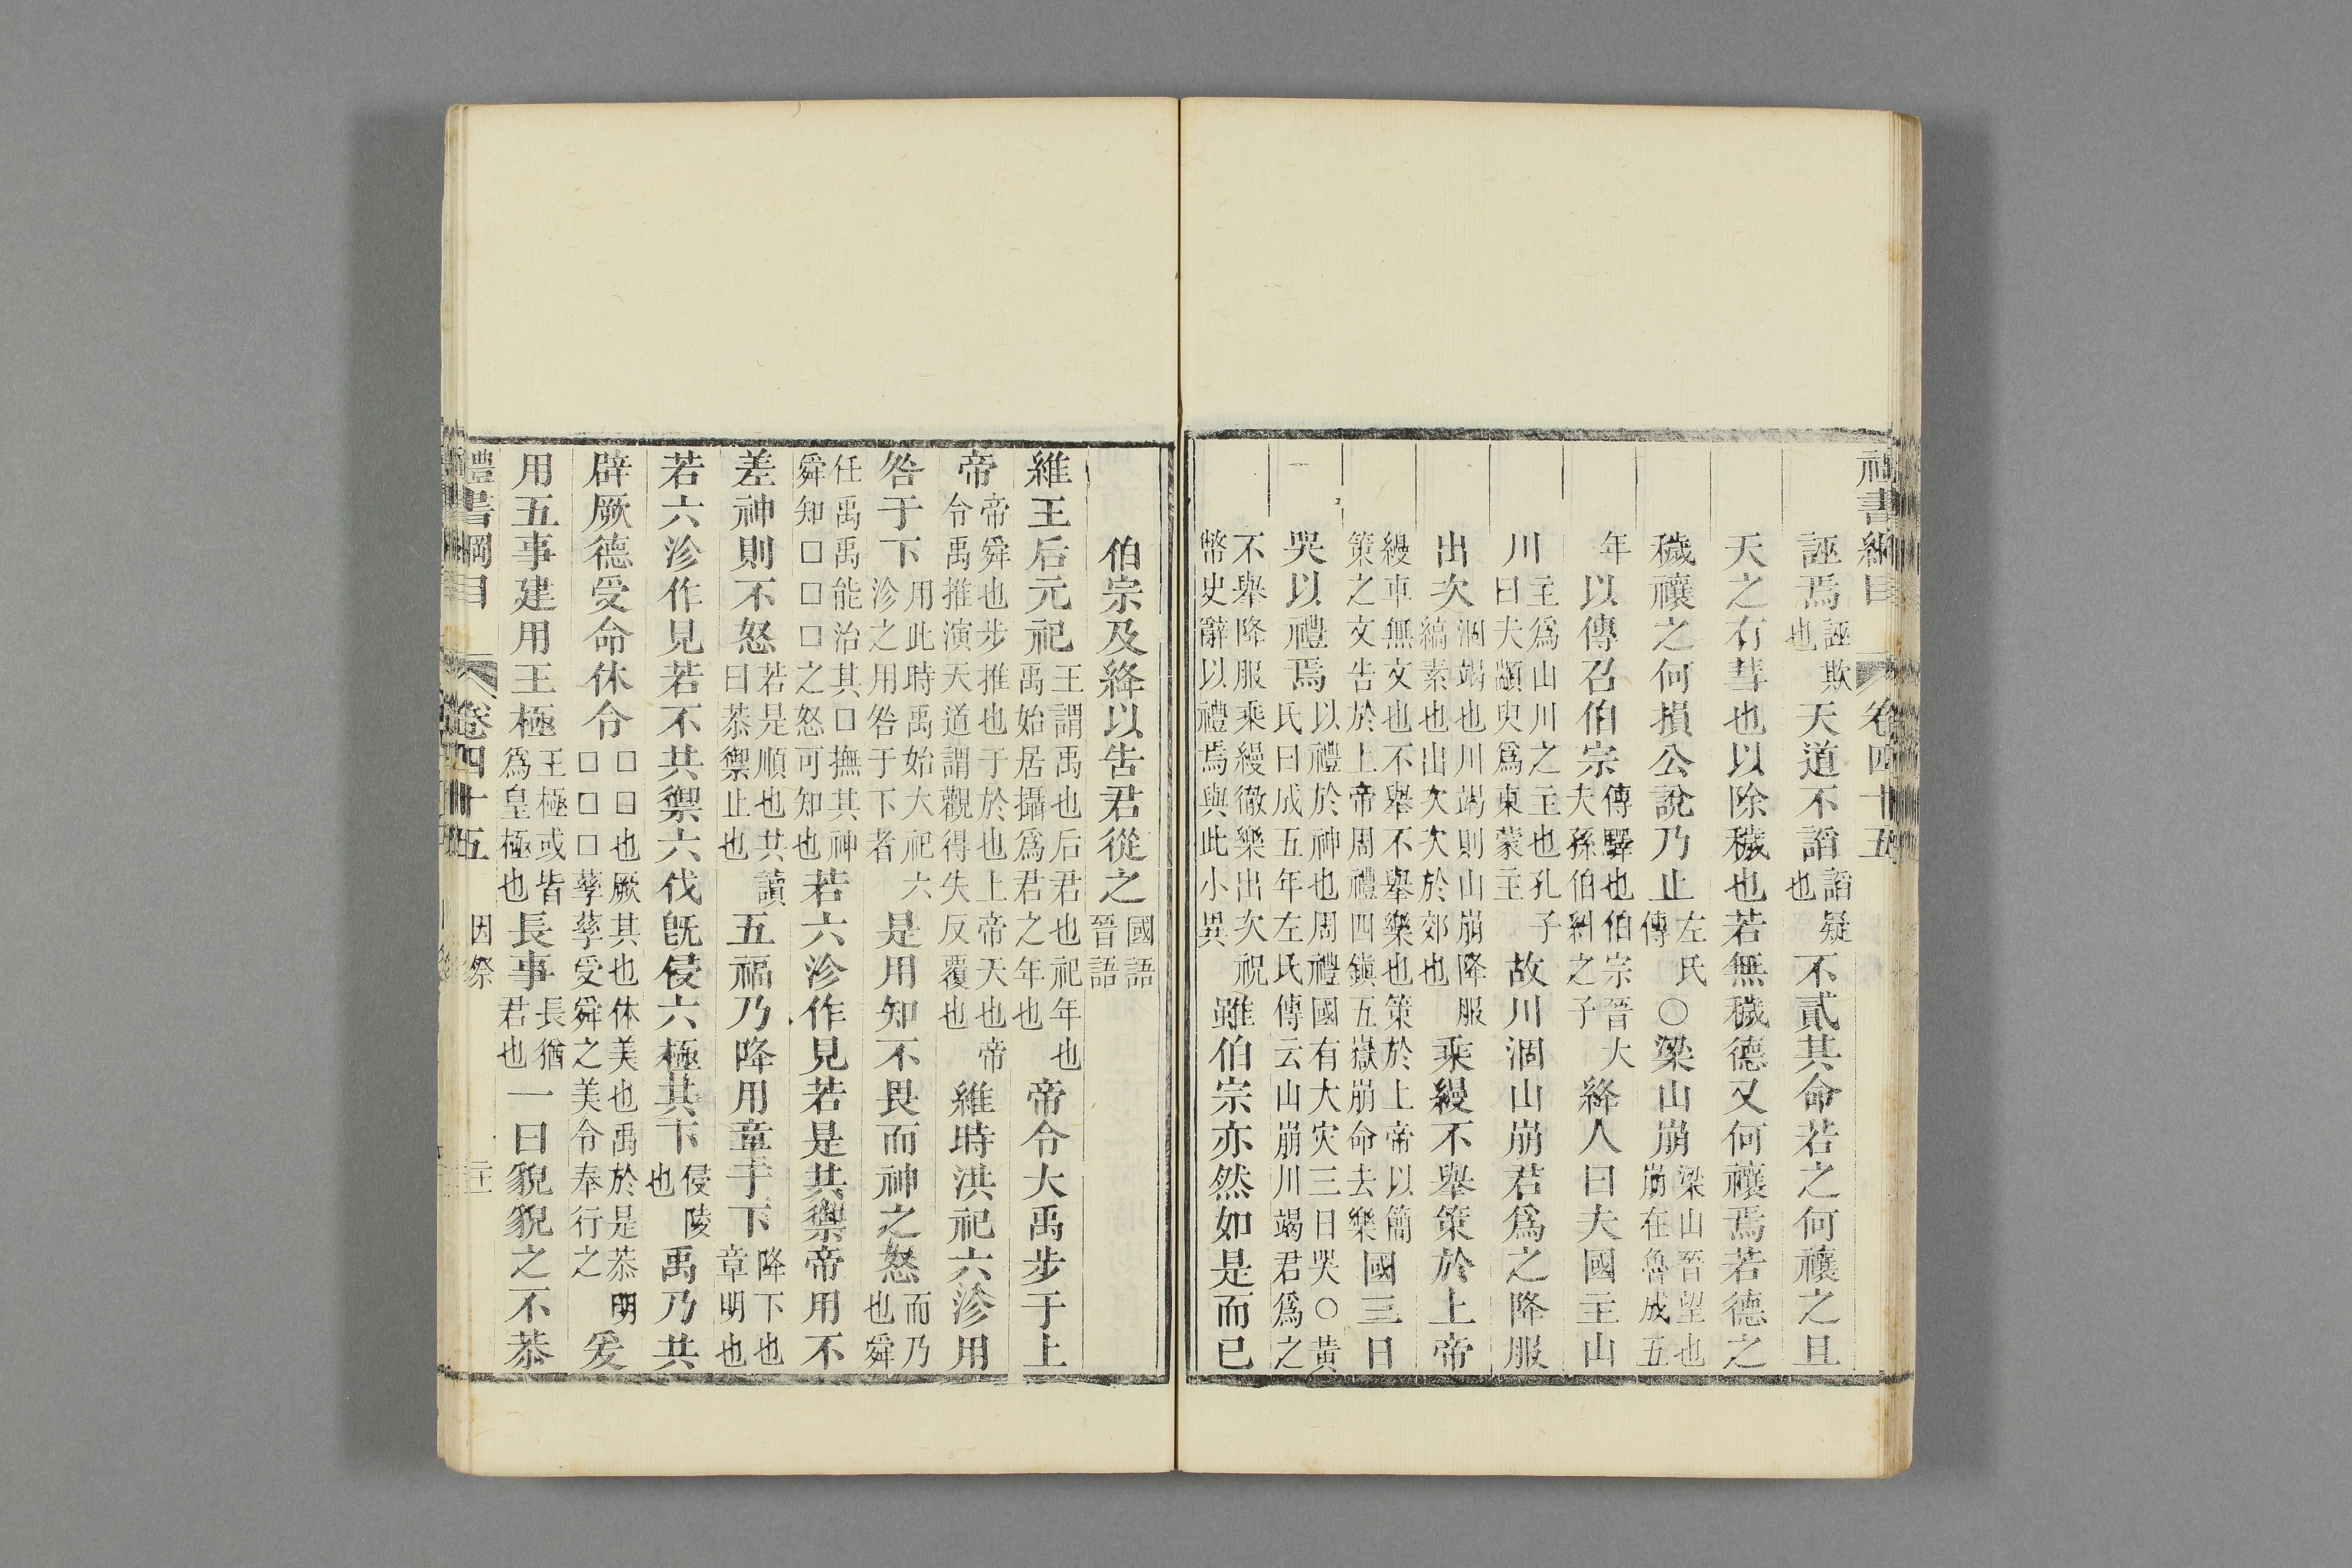 禮書綱目 卷四十五
誣焉誣欺也天道不謟謟疑也不貳其命若之何禳之且
天之有彗也以除穢也若無穢德又何禳焉若德之
穢禳之何損公說乃止左氏傳○梁山崩梁山晉望也崩在魯成五
年以傳召伯宗傳驛也伯宗晉大夫孫伯糾之子絳人曰夫國主山
川主爲山川之主也孔子曰夫顓臾爲東蒙主故川涸山崩君爲之降服
出次涸竭也川竭則山崩降服縞素也出次次於郊也乘縵不舉策於上帝
縵車無文也不舉不舉樂也策於上帝以簡策之文告於上帝周禮四鎭五嶽崩命去樂國三日
哭以禮焉以禮於神也周禮國有大灾三日哭○黃氏曰成五年左氏傳云山崩川竭君爲之
不舉降服乘縵徹樂出次祝幣史辭以禮焉與此小異雖伯宗亦然如是而已
伯宗及絳以告君從之國語晉語
維王后元祀王謂禹也后君也祀年也禹始居攝爲君之年也帝令大禹步于上
帝帝舜也步推也于於也上帝天也帝令禹推演天道謂觀得失反覆也維時洪祀六沴用
咎于下用此時禹始大祀六沴之用咎于下者是用知不畏而神之怒而乃也舜
任禹禹能治其□撫其神舜知□□□之怒可知也若六沴作見若是共禦帝用不
差神則不怒若是順也共讀曰恭禦止也五福乃降用章于下降下也章明也
若六沴作見若不共禦六伐旣侵六極其下侵陵也禹乃共
辟厥德受命休令□曰也厥其也休美也禹於是恭明□□□孳孳受舜之美令奉行之爰
用五事建用王極王極或皆爲皇極也長事長猶君也一曰貌貌之不恭
禮書綱目 卷四十五 因祭